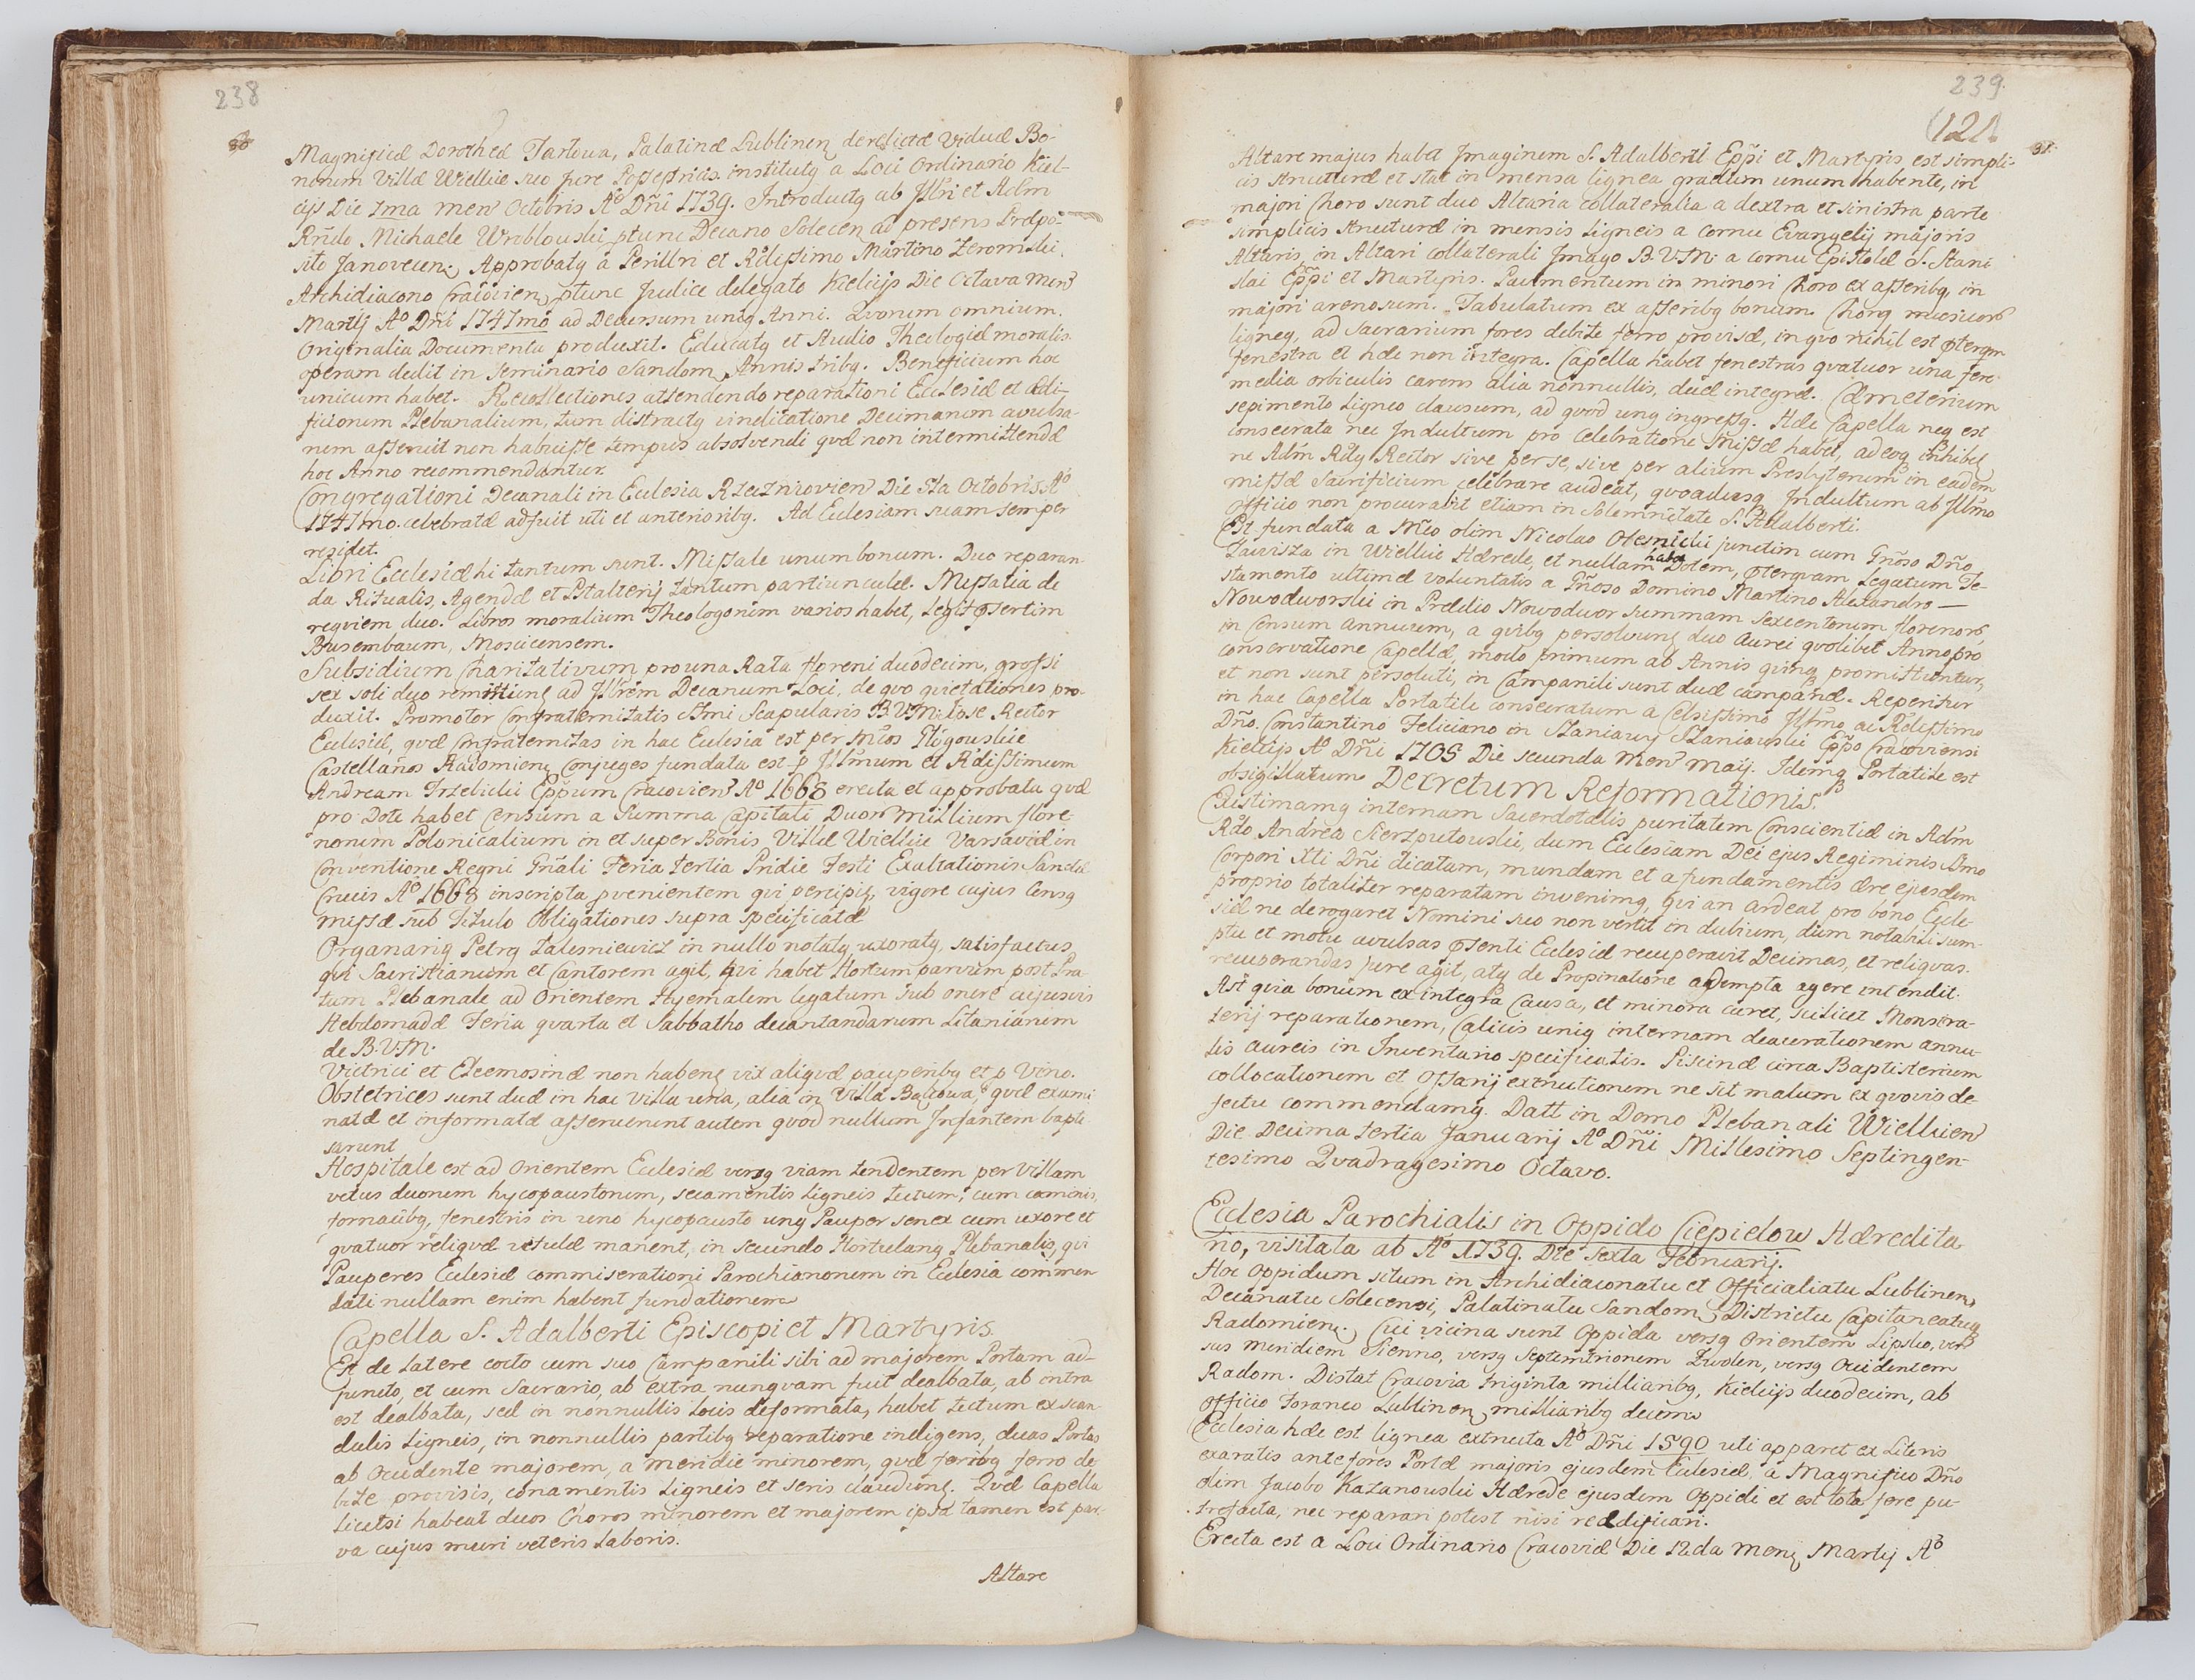 238
Magnificæ Dorotheæ Tarłowa, Palatinæ Lublinen derelictæ Viduæ Bo-
norum Villæ Wielkie suo jure Possestricis. institutq a Loci Ordinario Kiel-
cijs Die 7ma Men Octobris Aº Dñi 1739. Introductq ab Jllri et Adm
Rñdo Michaele Wroblowski ptunc Decano Solecen ad præsens Præpo-
sito Janovecen. Approbatq a Perilln et Rdissimo Martino Zeromski.
Archidiacono Cracovien ptunc Judice delegato Kielcijs Die Octava Men
Martij Aº Dñi 1747mo ad Decursum uniq Anni. Quorum omnium.
Originalia Documenta produxit. Educatq et Studio Theologiæ moralis.
operam dedit in Seminario Sandom Annis tribq. Beneficium hoc
unicum habet. Recollectiones attendendo reparationi Ecclesiæ et Ædi-
ficiorum Plebanalium, tum distractq vindicatione Decimarum avulsa-
rum asseruit non habuisse tempus absolvendi quæ non intermittendæ
hoc Anno recommendantur.
Congregationi Decanali in Ecclesia Rzeczniovien Die 5ta Octobris Aº
1747mo. celebratæ adfuit uti et anterioribq. Ad Ecclesiam suam semper
residet.
Libri Ecclesiæ hi tantum sunt. Missale unum bonum. Duo reparan-
da Ritualis, Agendæ et Psalterij tantum partiunculæ. Missalia de
requiem duo. Libros moralium Theologorum varios habet, legit psertim
Busembaum, Moscicensem.
Subsidium Charitativum pro una Rata floreni duodecim, grossi
sex soli duo remittunt ad Jllrem Decanum Loci, de quo quietationes pro-
duxit. Promotor Confraternitatis Stmi Scapularis B.V.M. ipse Rector
Ecclesiæ, quæ Confraternitas in hac Ecclesia est per Mcos Gligouskie
Castellanos Radomien Conjuges fundata est p Jllmum et Rdissimum
Andream Trzebicki Eppum Cracovien Aº 1668 erecta et approbata quæ
pro Dote habet Censum a Summa Capitali Duorum Millium flore-
norum Polonicalium in et super Bonis Villæ Wielkie Varsaviæ in
Conventione Regni Gñali Feria tertia Pridie Festi Exaltationis Sanctæ
Crucis Aº 1668 inscripta pvenientem qui percipit, vigore cujus Censq
Missæ sub Titulo Obligationes supra specificatæ
Organariq Petrq Zalesniewicz in nullo notatq uxoratq, satisfactus
qui Sacristianum et Cantorem agit, qui habet Hortum parvum post Pra-
tum Plebanale ad Orientem Hyemalem legatum sub onere cujusvis
Hebdomadæ Feria quarta et Sabbatho decantandarum Litaniarum
de B.V.M.
Victrici et Eleemosinæ non haben vix aliquæ pauperibq et p Vino.
Obstetrices sunt duæ in hac villa una, alia in Villa Bąkowa, quæ exami-
natæ et informatæ asseruerunt autem quod nullum Infantem bapti-
sarunt
Hospitale est ad Orientem Ecclesiæ versq viam tendentem per Villam
vetus duorum hypocaustorum, secamentis ligneis tectum, cum caminis,
fornacibq, fenestris in uno hypocausto unq Pauper senex cum uxore et
quatuor reliquæ vetulæ manent, in secundo Hortulanq Plebanalis, qui
Pauperes Ecclesiæ commiserationi Parochianorum in Ecclesia commen-
dati nullam enim habent fundationem
Capella S. Adalberti Episcopi et Martyris.
Est de latere cocto cum suo Campanili sibi ad majorem Portam ad-
juncto, et cum Sacrario, ab extra nunquam fuit dealbata, ab intra
est dealbata, sed in nonnullis locis deformata, habet tectum ex scan-
dulis ligneis, in nonnullis partibq reparatione indigens, duas Portas
ab Occidente majorem, a meridie minorem, quæ foribq ferro de-
bite provisis, conamentis ligneis et seris claudunt. Quæ Capella
licetsi habeat duos Choros minorem et majorem ipsa tamen est par-
va cujus muri veteris laboris.
Altare
239
121
Altare majus habet Jmaginem S. Adalberti Eppi et Martyris est simpli-
cis structuræ et stat in mensa lignea gradum unum habente, in
majori Choro sunt duo Altaria collateralia a dextra et sinistra parte
simplicis structuræ in mensis ligneis a cornu Evangelij majoris
Altaris, in Altari collaterali Jmago B.V.M. a cornu Epistolæ S. Stani-
slai Eppi et Martyris. Pavimentum in minori Choro ex asseribq, in
majori arenosum. Tabulatum ex asseribq bonum. Chorq musicorum
ligneq, ad Sacrarium fores debite ferro provisæ, in quo nihil est pterqm
fenestra et hæc non integra. Capella habet fenestras quatuor una fere
media orbiculis carens alia nonnullis, duæ integræ. Cæmeterium
sepimento ligneo clausum, ad quod unq ingressq. Hæc Capella neq est
consecrata nec Jndultum pro celebratione Missæ habet, adeoq inhibet
ne Adm Rdq Rector sive per se, sive per alium Presbyterum in eadem
Missæ Sacrificium celebrare audeat, quoadusq Jndultum ab Jllmo
Officio non procurabit etiam in Solemnitate S. Adalberti.
Est fundata a Mco olim Nicolao Olesnicki junctim cum Gñoso Dño
Zawisza in Wielkie Hærede, et nullam habet Dotem, pterquam Legatum Te-
stamento ultimæ voluntatis a Gñoso Domino Martino Alexandro —
Nowodworski in Prædio Nowodwor summam sexcentorum florenorum
in Censum annuum, a quibq persolvunt duo Aurei quolibet Anno pro
conservatione Capellæ, modo primum ab Annis quinq promittuntur,
et non sunt persoluti, in Campanili sunt duæ campanæ. Reperitur
in hac Capella Portatile consecratum a Celsissimo Jllmo ac Rdissimo
Dño Constantino Feliciano in Szaniawy Szaniawski Eppo Cracoviensi
Kielcijs Aº Dñi 1705 Die secunda Men Maij. Jdemq Portatile est
obsigillatum. Decretum Reformationis.
Existimamq internam Sacerdotalis puritatem Conscientiæ in Adm
Rdo Andrea Sierzputowski, dum Ecclesiam Dei ejus Regiminis Stmo
Corpori Xti Dñi dicatam, mundam et a fundamentis ære ejusdem
proprio totaliter reparatam invenimq, qui an ardeat pro bono Eccle-
siæ ne derogaret Nomini suo non vertit in dubium, dum notabili sum-
ptu et motu avulsas psenti Ecclesiæ recuperavit Decimas, et reliquas.
recuperandas jure agit, atq de Propinatione adempta agere intendit.
Ast quia bonum ex integra Causa, et minora curet, scilicet Monstra-
terij reparationem, Calicis uniq internam deaurationem annu-
lis aureis in Inventario specificatis. Piscinæ circa Baptisterium
collocationem et Ossarij exstructionem ne sit malum ex quovis de-
fectu commendamq. Datt in Domo Plebanali Wielkien
Die Decima tertia Januarij Aº Dñi Millesimo Septingen-
tesimo Quadragesimo Octavo.
Ecclesia Parochialis in Oppido Ciepielow Hæredita-
rio, visitata ab Aº 1739. Die sexta Februarij.
Hoc Oppidum situm in Archidiaconatu et Officialiatu Lublinen,
Decanatu Solecensi, Palatinatu Sandom Districtu Capitaneatuq
Radomien. Cui vicina sunt Oppida versq Orientem Lipsko, ver-
sus meridiem Sienno, versq Septemtrionem Zwolen, versq Occidentem
Radom. Distat Cracovia triginta milliaribq, Kielcijs duodecim, ab
Officio Foraneo Lublinen milliaribq decem
Ecclesia hæc est lignea extructa Aº Dñi 1590 uti apparet ex Literis
exaratis ante fores Portæ majoris ejusdem Ecclesiæ, a Magnifico Dño
olim Jacobo Kazanowski Hærede ejusdem Oppidi et est tota fere pu-
trefacta, nec reparari potest nisi reædificari.
Erecta est a Loci Ordinario Cracoviæ Die 12da Men Martij Aº